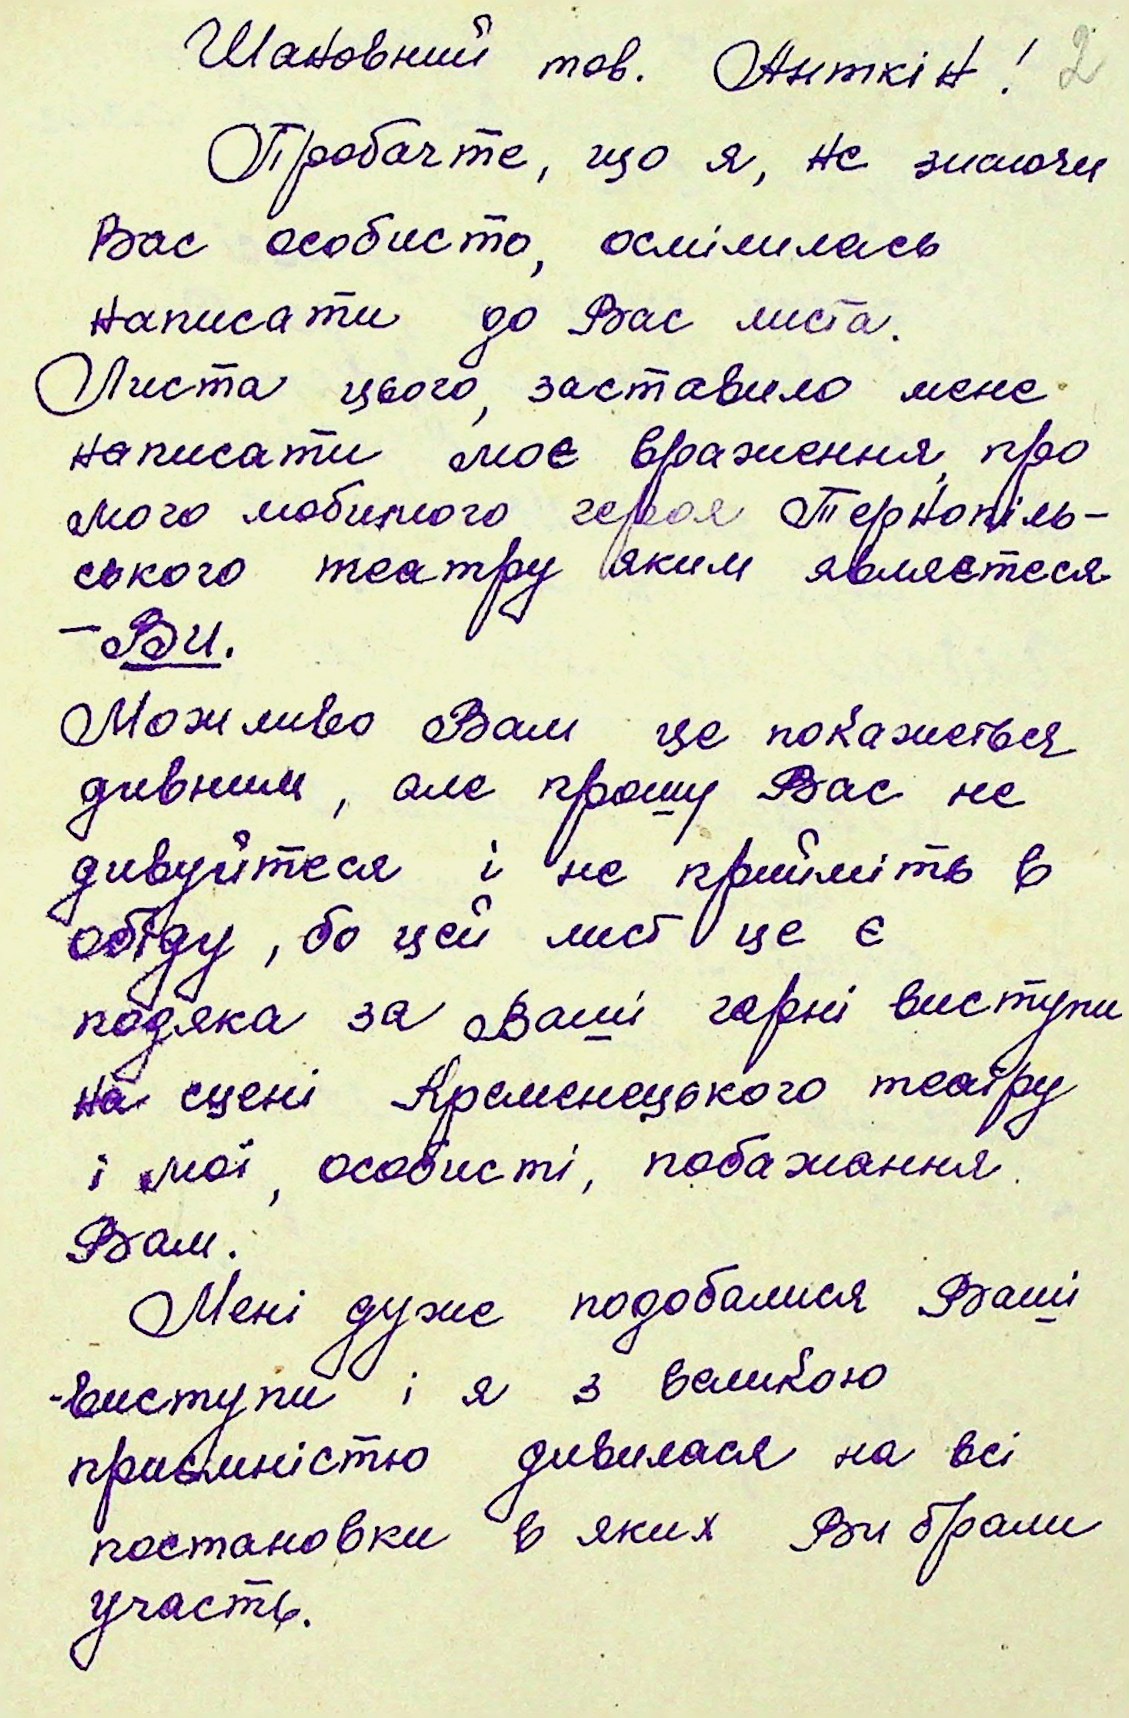 Шановний тов. Анткін! 2
Пробачте, що я, не знаючи
Вас особисто, осмілилась
написати до Вас листа.
Листа цього, заставило мене
написати моє враження, про
мого любимого героя Тернопіль-
ського театру яким являєтеся
- Ви.
Можливо Вам це покажеться
дивним, але прошу Вас не
дивуйтеся і не прийміть в
обіду, бо цей лист це є
подяка за Ваші гарні виступи
на сцені Кременецького театру
і мої, особисті, побажання
Вам.
Мені дуже подобалися Ваші
виступи і я з великою
приємністю дивилася на всі
постановки в яких Ви брали
участь.